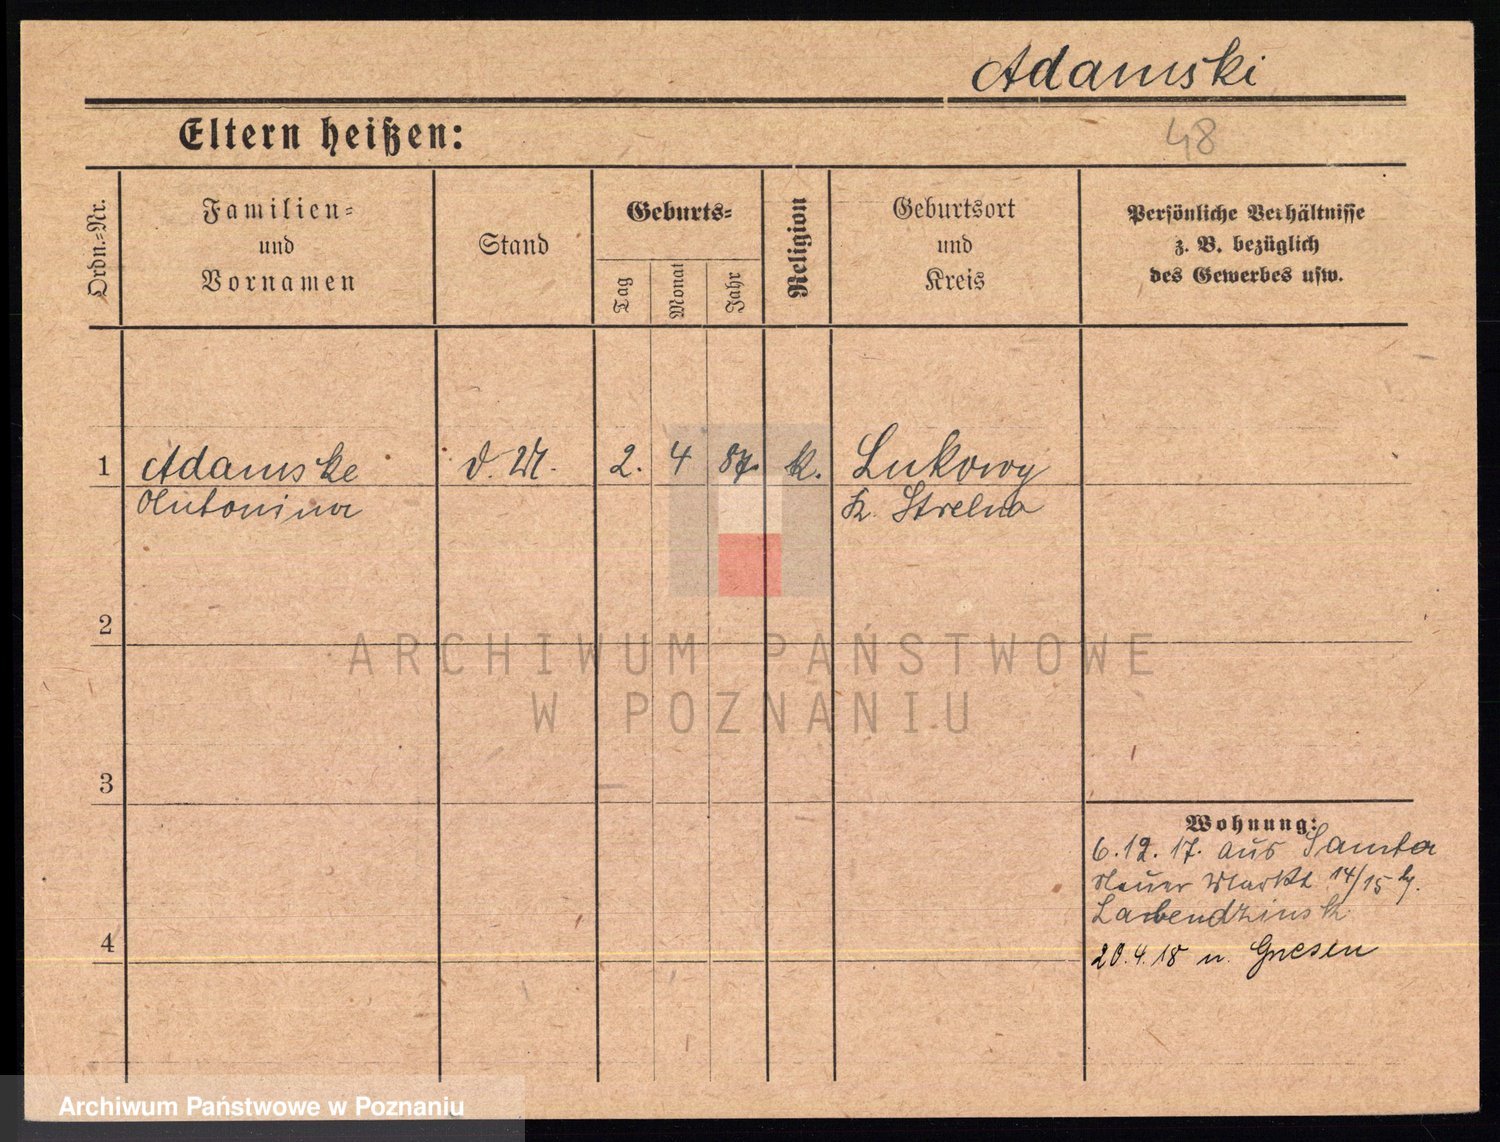 Adamski
Eltern heißen:
48
Ordn.-Nr.
Familien-
und
Vornamen
Stand
Geburts-
Tag
Monat
Jahr
Religion
Geburtsort
und
Kreis
Persönliche Verhältnisse
z. B. bezüglich
des Gewerbes usw.
1
Adamske
Antonina
d. M.
2.
4
87.
k.
Lukowy
K. Strelno
2
3
4
Wohnung:
6.12.17. aus Samter
Neuer Markt 14/15 b.
Labendzinsk
20.4.18 n. Gnesen
ARCHIWUM PAŃSTWOWE
W POZNANIU
Archiwum Państwowe w Poznaniu